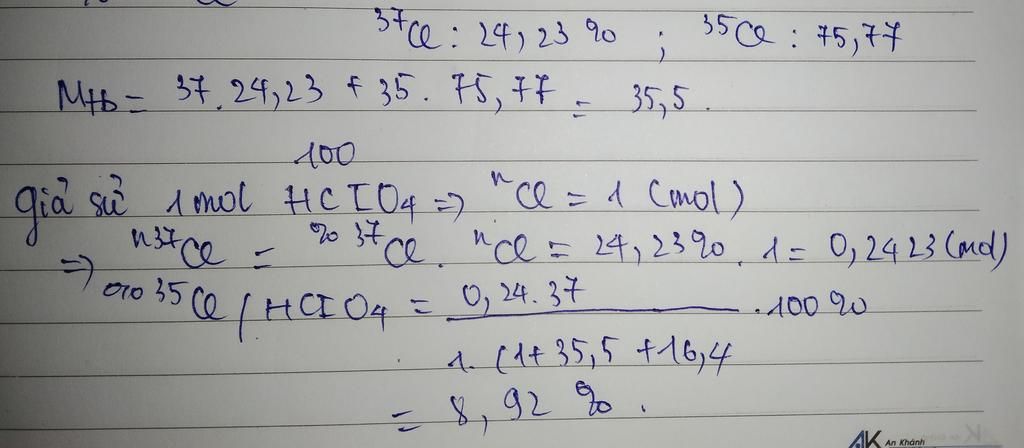 ³⁷Cl : 24,23 % ; ³⁵Cl : 75,77
Mtb = 37. 24,23 + 35. 75,77 = 35,5.
100
giả sử 1 mol HCIO4 => nCl = 1 (mol)
=> n37Cl = % 37Cl. nCl = 24,23%. 1 = 0,2423 (mol)
% 35Cl / HCIO4 = 0,24.37 .100%
1. (1+35,5 +16,4
= 8,92 %.
AK An Khánh